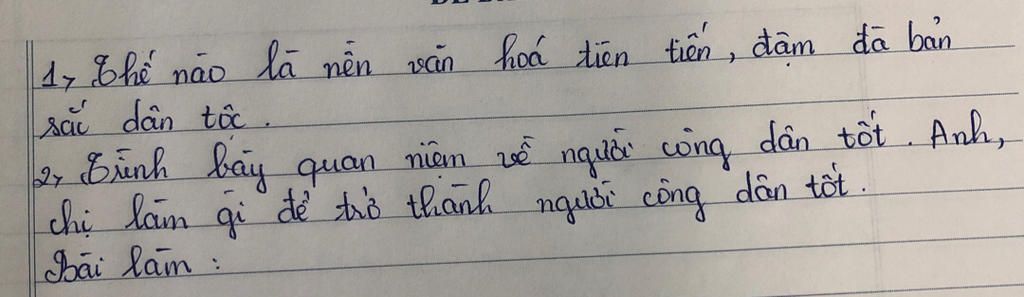 1, Thế nào là nền văn hoá tiên tiến, đậm đà bản
sắc dân tộc.
2, Trình bày quan niệm về người công dân tốt. Anh,
chị làm gì để trở thành người công dân tốt.
Bài làm: